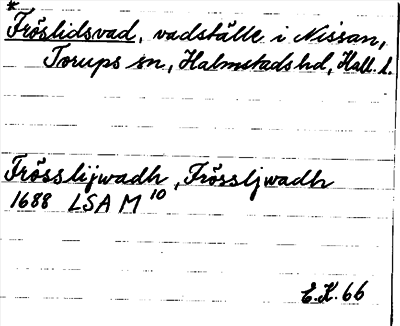 *
Fröslidsvad, vadställe i Nissan,
Torups sn, Halmstads hd, Hall. l.
Frösslijwadh, Frössljwadh
1688 LSA M 10
E.K. 66